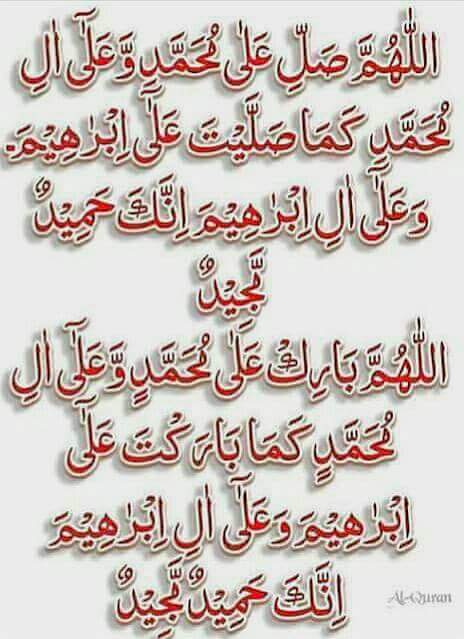 اَللّٰهُمَّ صَلِّ عَلٰى مُحَمَّدٍ وَّعَلٰٓى اٰلِ
مُحَمَّدٍ كَمَا صَلَّيْتَ عَلٰٓى اِبْرٰهِيْمَ۔
وَعَلٰٓى اٰلِ اِبْرٰهِيْمَ اِنَّكَ حَمِيْدٌ
مَّجِيْدٌ
اَللّٰهُمَّ بَارِكْ عَلٰى مُحَمَّدٍ وَّعَلٰٓى اٰلِ
مُحَمَّدٍ كَمَا بَارَكْتَ عَلٰٓى
اِبْرٰهِيْمَ وَعَلٰٓى اٰلِ اِبْرٰهِيْمَ
اِنَّكَ حَمِيْدٌ مَّجِيْدٌ
Al-Quran